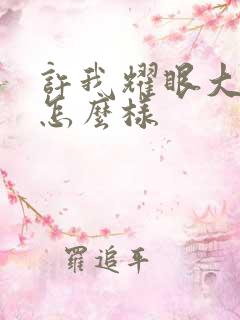 許我耀眼大
怎麼樣
羅追平